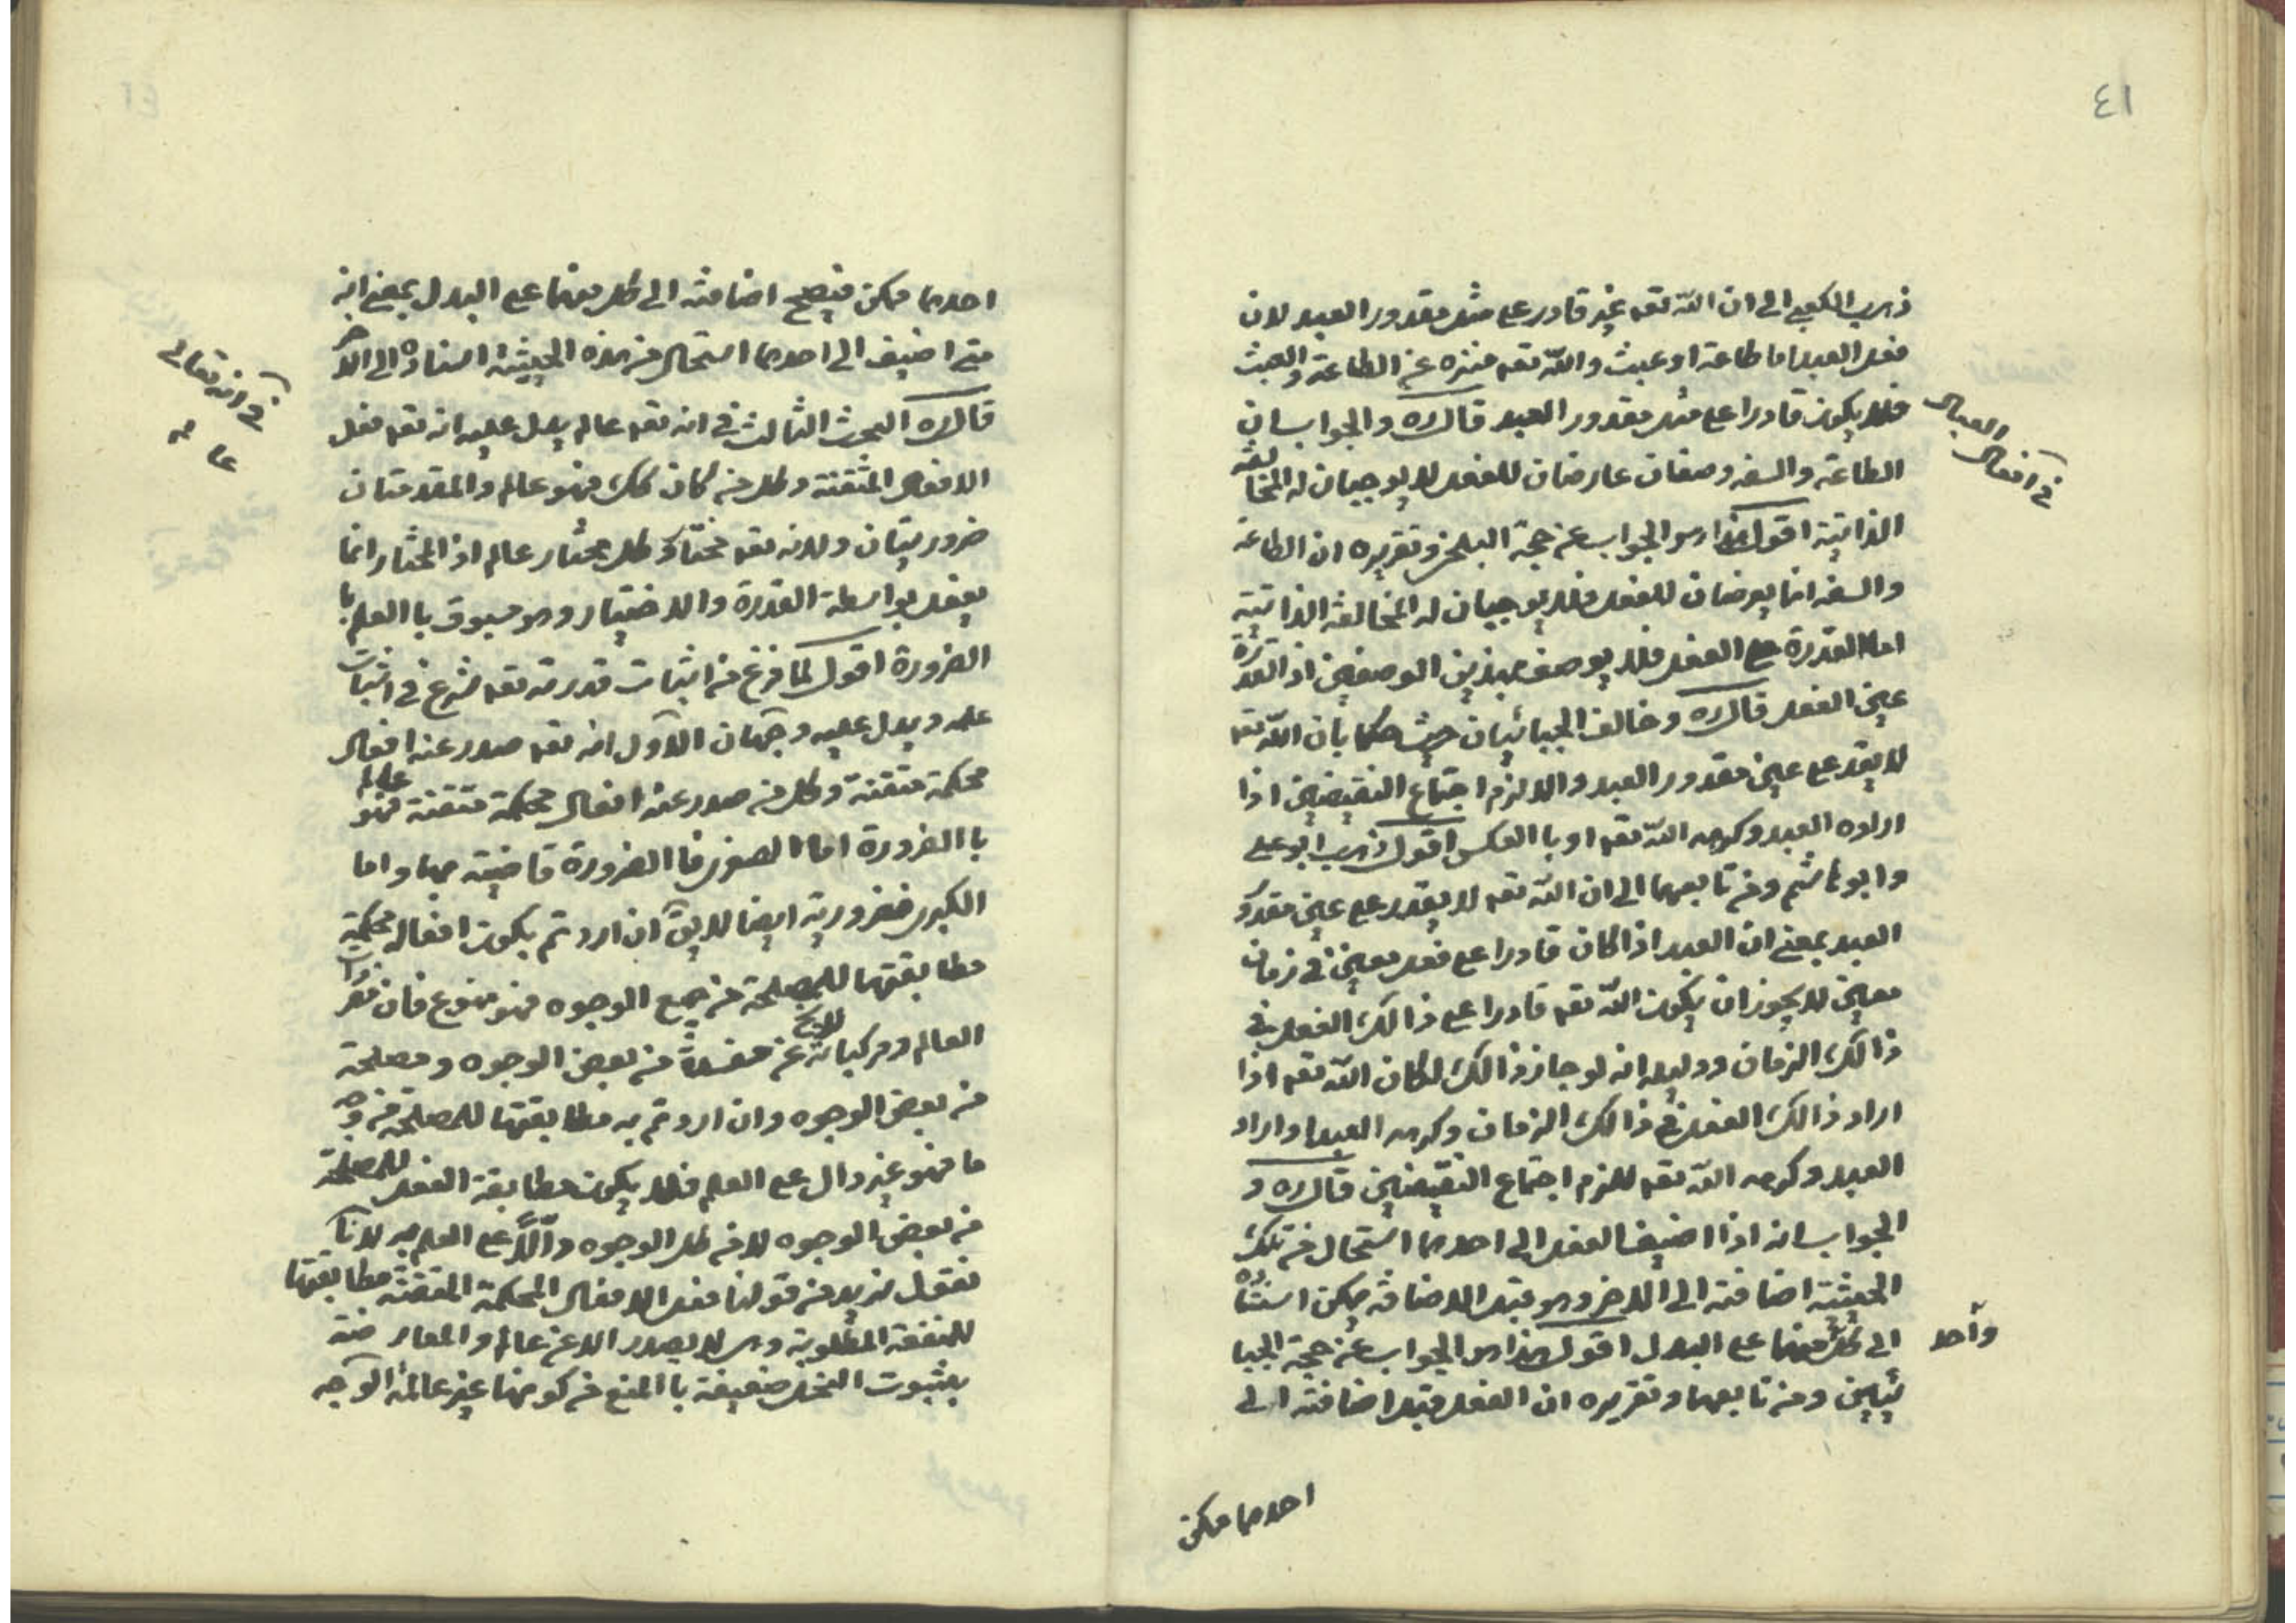 ٤١
ذهب الكعبي الى ان الله تعم غير قادر على مثل مقدور العبد لان
فعل العبد اما طاعة او عبث والله تعم منزه عن الطاعة والعبث
فلا يكون قادرا على مثل مقدور العبد قال ره والجواب ان
الطاعة والسفه وصفان عارضان للفعل لا يوجبان له المخالفة
الذاتية اقول هذا هو الجواب عن حجة البلخي وتقريره ان الطاعة
والسفه انما يعرضان للفعل فلا يوجبان له المخالفة الذاتية
اما القدرة على الفعل فلا يوصف بهذين الوصفين اذ القدرة
عين الفعل قال ره وخالف الجبائيان حيث حكما بان الله تعم
لا يقدر على عين مقدور العبد والا لزم اجتماع النقيضين اذا
اراده العبد وكرهه الله تعم او با العكس اقول ذهب ابو على
وابو هاشم ومن تابعهما الى ان الله تعم لا يقدر على عين مقدور
العبد بمعنى ان العبد اذا كان قادرا على فعل معين في زمان
معين لا يجوز ان يكون الله تعم قادرا على ذالك الفعل في
ذالك الزمان ودليله انه لو جاز ذالك لكان الله تعم اذا
اراد ذالك الفعل في ذالك الزمان وكرهه العبد او اراد
العبد وكرهه الله تعم للزم اجتماع النقيضين قال ره و
الجواب انه اذا اضيف الفعل الى احدهما استحال من تلك
الحيثية اضافته الى الاخر وهو قبل الاضافة يمكن استناده
الى كل منهما على البدل اقول هذا هو الجواب عن حجة الجبا
ئيين ومن تابعهما وتقريره ان الفعل قبل اضافته الى
في افعال العباد
واحد
احدهما ممكن
احدهما ممكن فيصح اضافته الى كل منهما على البدل بمعنى انه
متى اضيف الى احدهما استحال من هذه الحيثية اسناده الى الاخر
قال ره البحث الثالث في انه تعم عالم يدل عليه انه تعم فعل
الافعال المتقنة وكل من كان كك فهو عالم والمقدمتان
ضروريتان ولانه تعم مختار وكل مختار عالم اذ المختار انما
يفعل بواسطة القدرة والاختيار وهو مسبوق با العلم با
الضرورة اقول لما فرغ من اثبات قدرته تعم شرع في اثبات
علمه ويدل عليه وجهان الاول انه تعم صدر عنه افعال
محكمة متقنة وكل من صدر عنه افعال محكمة متقنة فهو عالم
با الضرورة اما الصغرى فا الضرورة قاضية بها واما
الكبرى فضرورية ايضا لا يق ان اردتم بكون افعاله محكمة
مطابقتها للمصلحة من جميع الوجوه فهو ممنوع فان مفردات
العالم ومركباته لا يخ عن مفسدة من بعض الوجوه ومصلحة
من بعض الوجوه وان اردتم به مطابقتها للمصلحة من وجه
ما فهو غير دال على العلم فلا يكون مطابقة الفعل للمصلحة
من بعض الوجوه لا من كل الوجوه دالا على العلم به لانا
نقول نريد من قولنا فعل الافعال المحكمة المتقنة مطابقتها
للمنفعة المطلوبة وهى لا يصدر الا عن عالم والمعارضة
بثبوت النحل ضعيفة با المنع من كونها غير عالمة الوجه
في انه تعالى
عالم